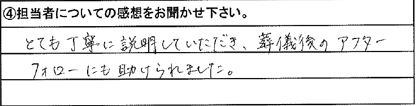 ④担当者についての感想をお聞かせ下さい。
とても丁寧に説明していただき、葬儀後のアフター
フォローにも助けられました。